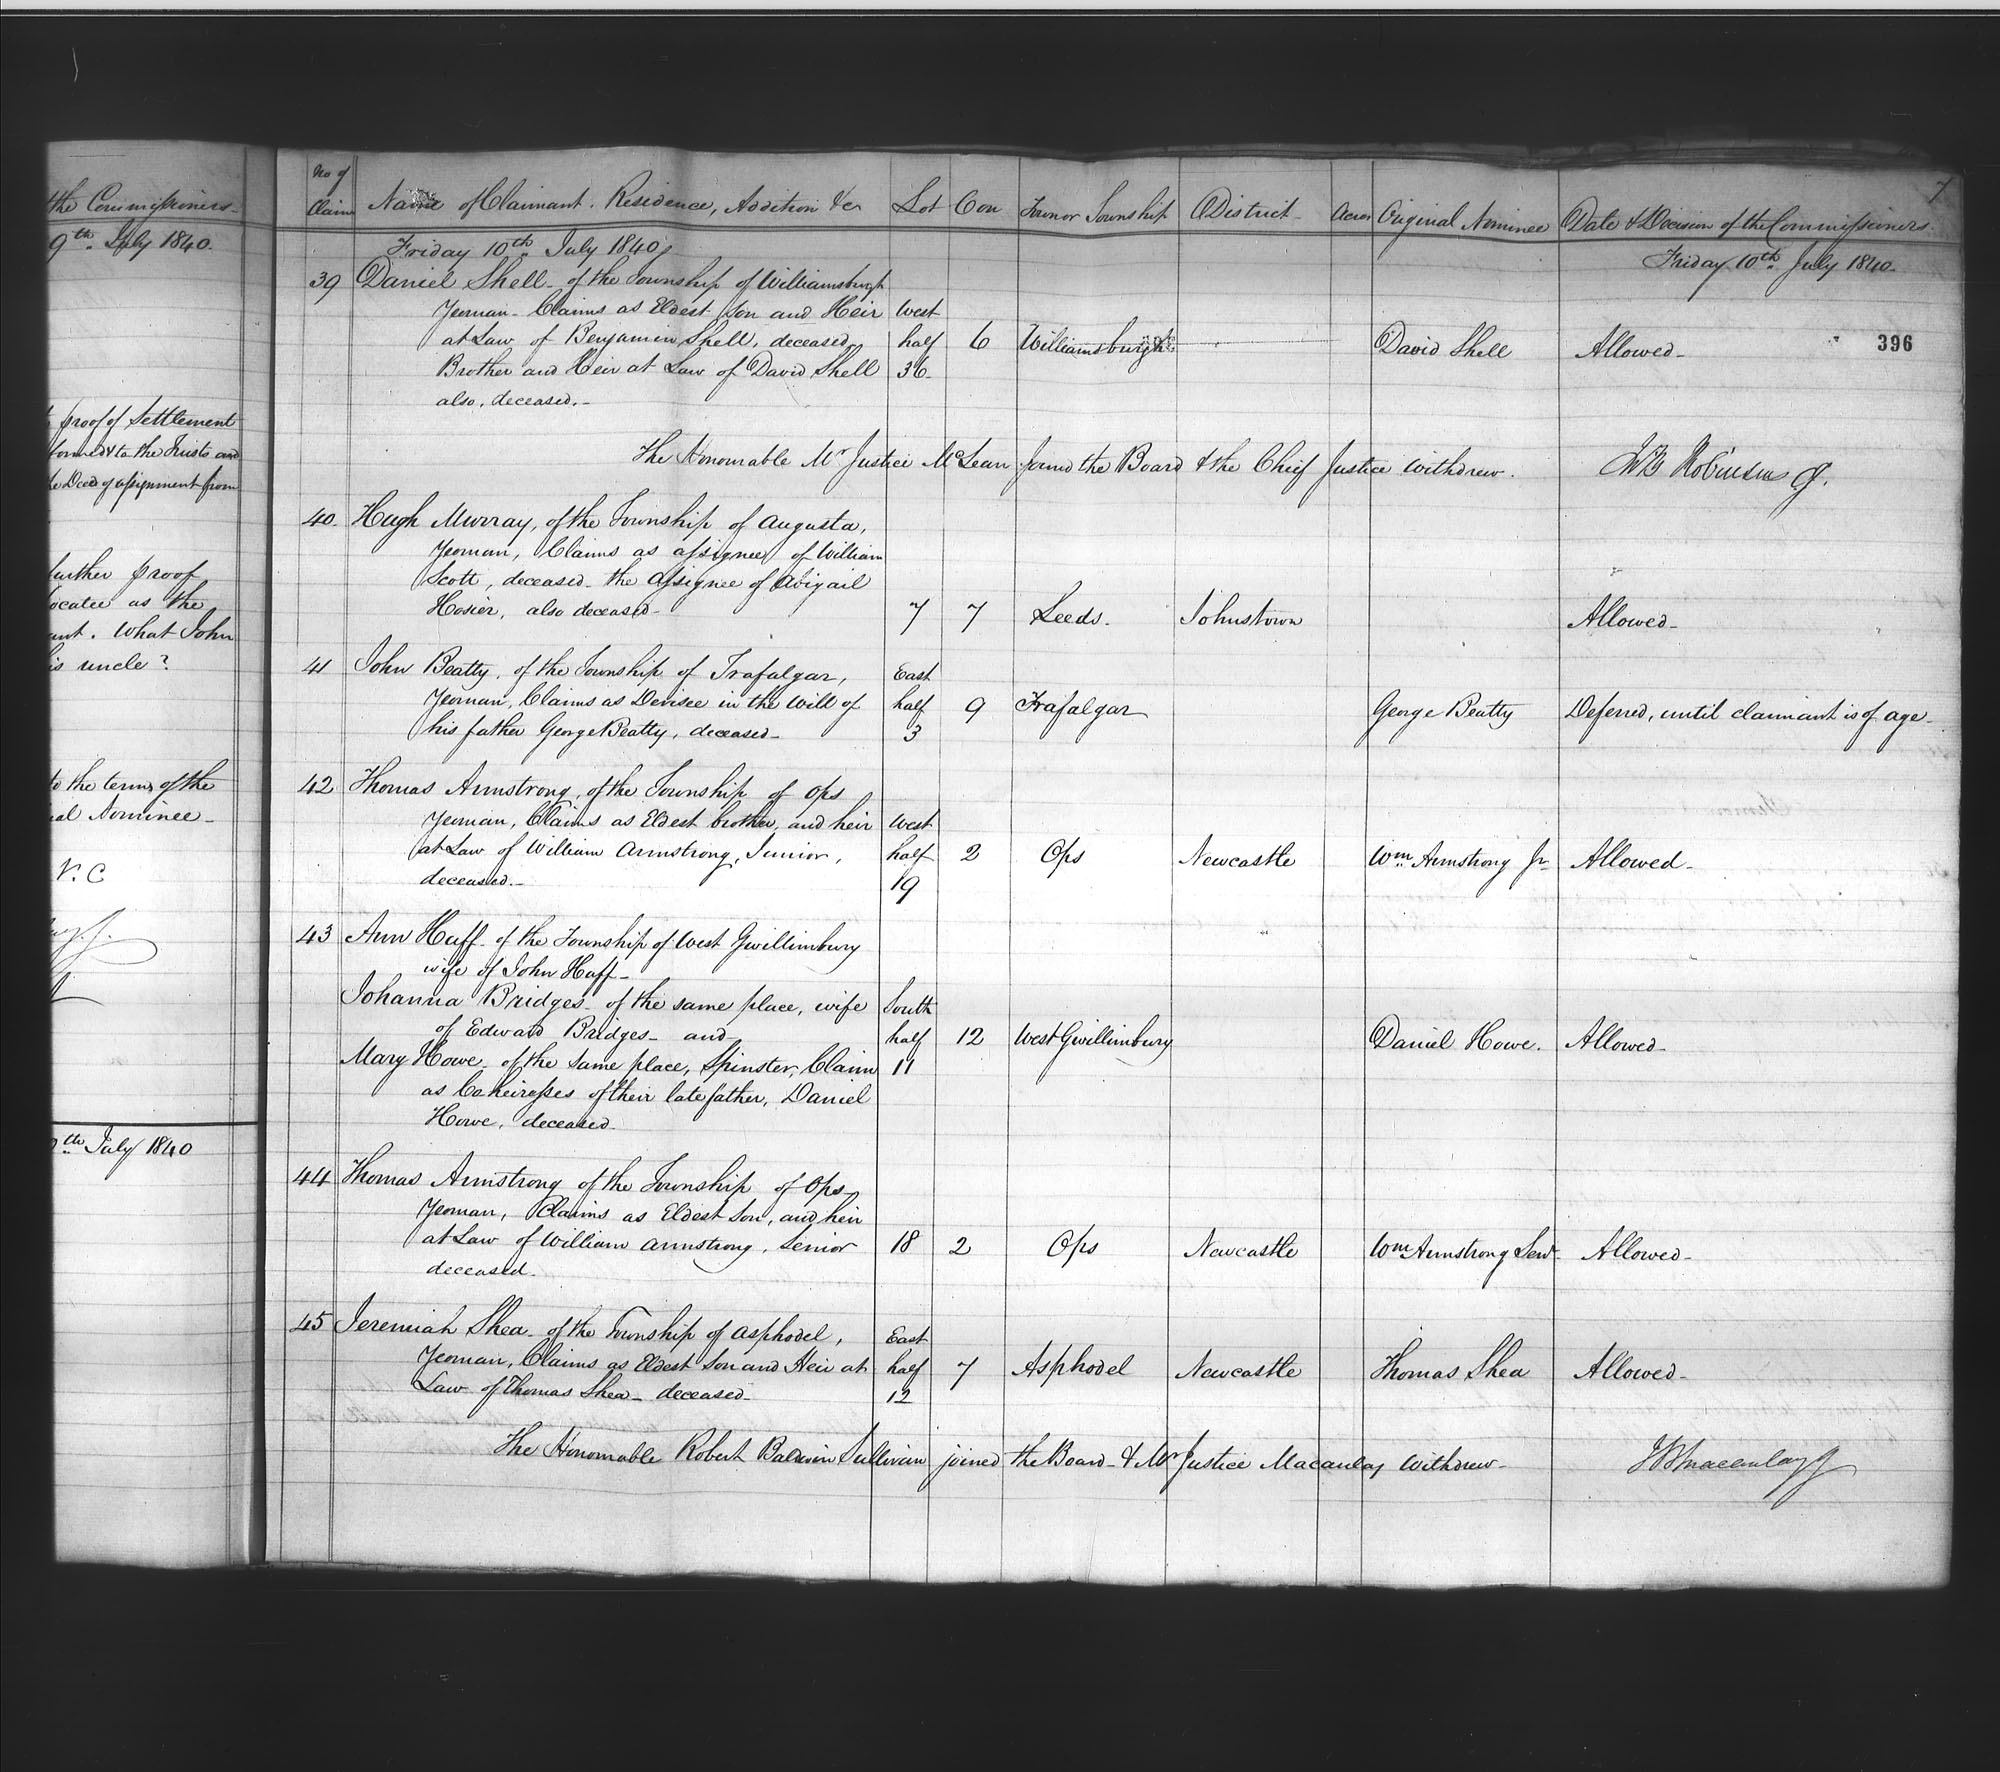 the Commissioners
9th July 1840.
proof of Settlement
to the Trusts and
Deed of assignment from
further proof
locatee as the
What John
his uncle?
to the terms of the
Nominee
V. C
th July 1840
7
No of Claim Name of Claimant. Residence, Addition &c Lot Con Town or Township District Acres Original Nominee Date & Decision of the Commissioners.
Friday 10th July 1840. Friday 10th July 1840.
396
39 Daniel Shell of the Township of Williamsburgh
Yeoman Claims as Eldest Son and Heir West
at Law of Benjamin Shell, deceased half 6 Williamsburgh David Shell Allowed
Brother and Heir at Law of David Shell 36
also, deceased.
The Honourable Mr Justice McLean joined the Board & the Chief Justice withdrew. JB Robinson CJ.
40 Hugh Murray, of the Township of Augusta,
Yeoman, Claims as assignee of William
Scott, deceased the assignee of Abigail
Hosier, also deceased 7 7 Leeds. Johnstown Allowed
41 John Beatty, of the Township of Trafalgar, East
Yeoman, Claims as Devisee in the Will of half 9 Trafalgar George Beatty Deferred, until claimant is of age
his father George Beatty, deceased 3
42 Thomas Armstrong, of the Township of Ops
Yeoman, Claims as Eldest brother, and heir West
at Law of William Armstrong, Junior, half 2 Ops Newcastle Wm Armstrong Jr Allowed
deceased. 19
43 Ann Huff of the Township of West Gwillimbury
wife of John Huff
Johanna Bridges of the same place, wife South
of Edward Bridges and half 12 West Gwillimbury Daniel Howe. Allowed
Mary Howe of the same place, Spinster, Claim 11
as Coheiresses of their late father, Daniel
Howe, deceased
44 Thomas Armstrong of the Township of Ops
Yeoman, Claims as Eldest Son, and heir
at Law of William Armstrong, Senior 18 2 Ops Newcastle Wm Armstrong Senr Allowed
deceased.
45 Jeremiah Shea of the Township of Asphodel, East
Yeoman, Claims as Eldest Son and Heir at half 7 Asphodel Newcastle Thomas Shea Allowed
Law of Thomas Shea deceased 12
The Honourable Robert Baldwin Sullivan joined the Board & Mr Justice Macaulay withdrew JB Macaulay J